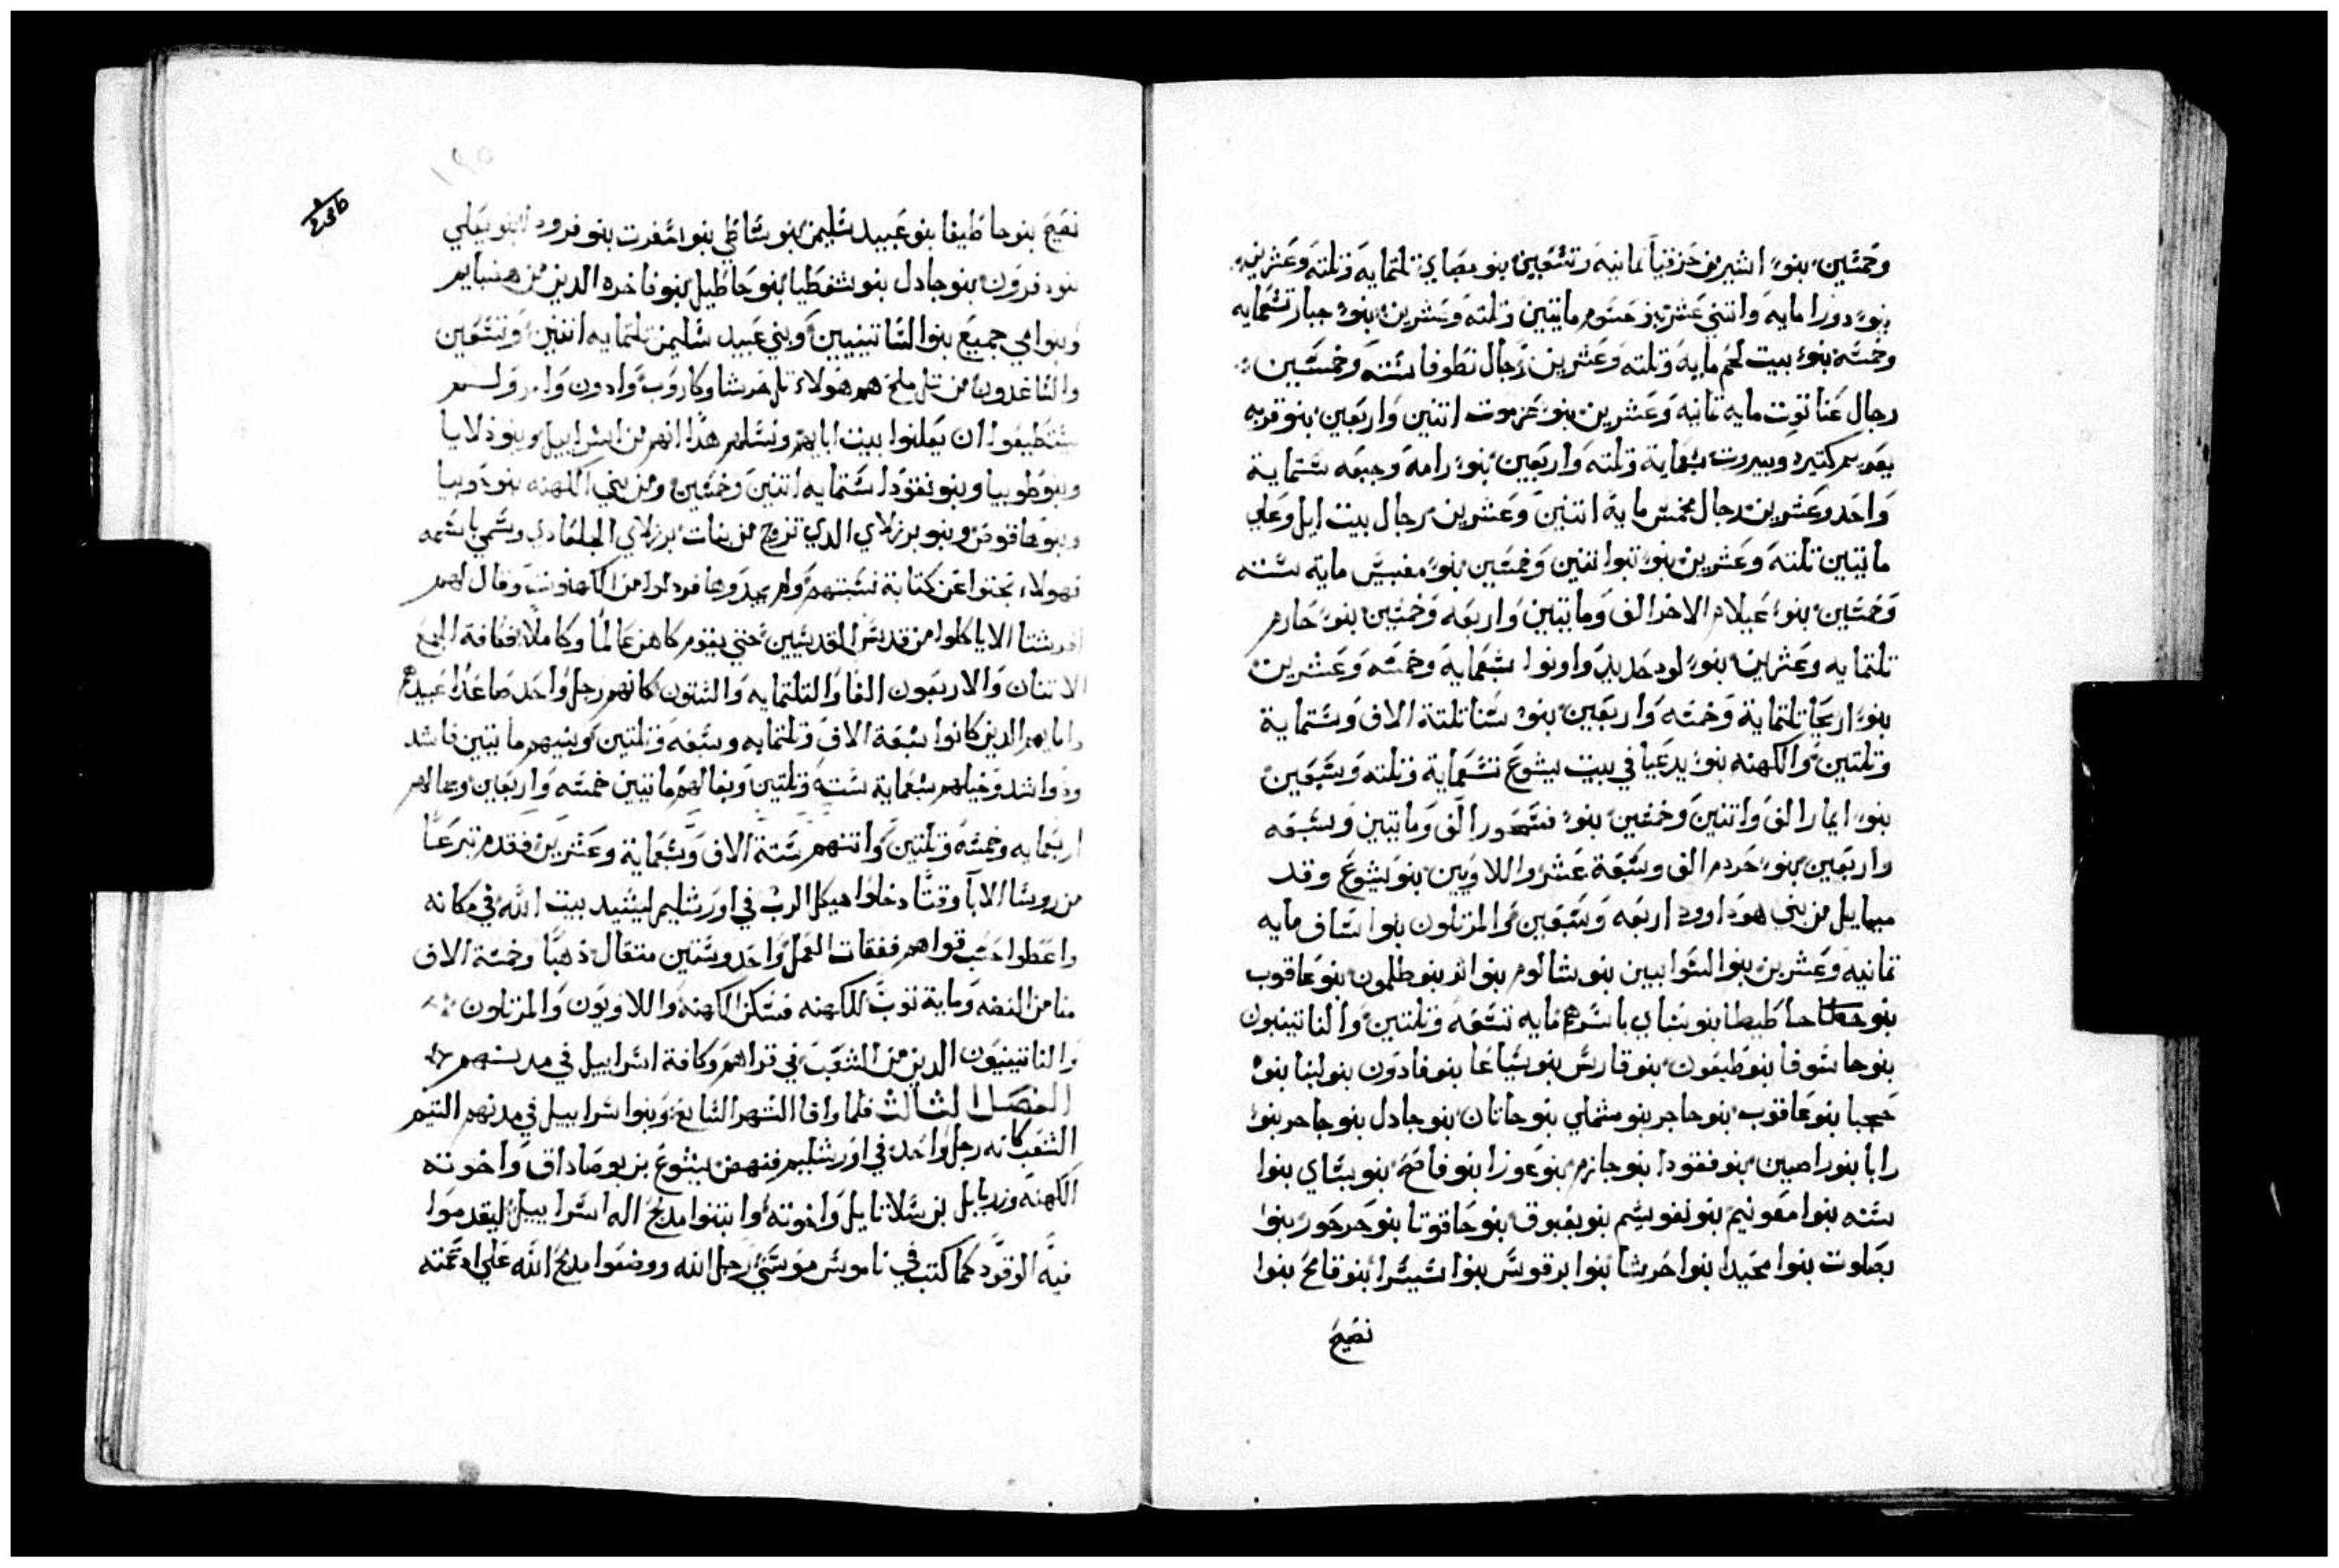 وخمسين بنو اشير بن حزقيا ثمانيه وتسعين بنو بصاي تلتمايه وتلته وعشرين
بنو دورا مايه واتني عشر بنو حسوم مايتين وتلته وعشرين بنو جبار تسعمايه
وخمسه بنو بيت لحم مايه وتلته وعشرين رجال نطوفا سته وخمسين
رجال عناتوت مايه تمانيه وعشرين بنو عزموت اتنين واربعين بنو قريه
يعريم كتيره وبيروت سبعماية وتلته واربعين بنو رامه وجبعه ستماية
واحد وعشرين رجال مخمس مايه اتنين وعشرين رجال بيت ايل وعاي
مايتين تلته وعشرين بنو نبوا اتنين وخمسين بنو مغبيس ماية سته
وخمسين بنو عيلام الاخر الف ومايتين واربعه وخمسين بنو حارم
تلتمايه وعشرين بنو لود حديد واونوا سبعماية وخمسه وعشرين
بنو اريحا تلتماية وخمسه واربعين بنو سنا تلتة الاف وستماية
وتلتين والكهنه بنو يدعيا في بيت يشوع تسعماية وتلته وسبعين
بنو ايمار الف واتنين وخمسين بنو فسحور الف ومايتين وسبعه
واربعين بنو حردم الف وسبعة عشر واللاويين بنو يشوع وقد
ميمايل من بني هودا وود اربعه وسبعين والمرتلون بنوا اساف مايه
تمانيه وعشرين بنوا البوابيين بنو شالوم بنوا اتر بنو طلمون بنو عاقوب
بنو حاطيطا بنو شاي باسرهم مايه تسعه وتلتين والناتينيون
بنو حاسوفا بنو طبعون بنو قارس بنو سياعا بنو فادون بنو لبنا بنو
حجبا بنو عاقوب بنو حاجر بنو شملي بنو حانان بنو جادل بنو جاحر بنو
رابا بنو راصين بنو نقودا بنو جازم بنو عوزا بنو فاصح بنو بساي بنوا
سنه بنوا معونيم بنو نفوسيم بنو بقبوق بنو حاقوتا بنو حرحور بنوا
بصلوت بنوا محيدا بنوا حرشا بنوا برقوس بنوا سيسرا بنو قامح بنوا
نصيح
نصيح بنو حاطيفا بنو عبيد سليمن بنو ساطي بنوا سفرت بنو فرودا بنو يعلي
بنو درون بنو جادل بنو شفطيا بنو حاطيل بنو فاخره الدين من هصبايم
وبنوا امي جميع بنوا الناتينيين وبني عبيد سليمن تلتمايه اتنين وتسعين
والصاعدون من تل ملح هم هولاء تل حرشا وكاروب وادون وامر ولم
يستطيعوا ان يعلنوا بيت ابايهم ونسلهم هدا انهم من اسراييل وبنو دلايا
وبنو طوبيا وبنو نقودا ستمايه اتنين وخمسين ومن بني الكهنه بنو دوبيا
وبنو هاقوص وبنو برزلاي الدي تزوج من بنات برزلاي الجلعادي وسمي باسمه
فهولاء بحتوا عن كتابة نسبتهم ولم يجدوها فرد لوا من الكهنوت وقال لهم
اترشتا الا ياكلوا من قدس القديسين حتي يقوم كاهن عالما وكاملا فكافة الجمع
الاتنان والاربعون الفا والتلتمايه والستون كانهم رجل واحد ما عدا عبيدهم
واماييهم الدين كانوا سبعة الاف وتلتمايه وسبعه وتلتين وبنيهم مايتين فاشد
ودواشد وخيلهم سبعماية سته وتلتين وبغالهم مايتين خمسه واربعين وجمالهم
اربعمايه وخمسه وتلتين واتنهم ستة الاف وسبعماية وعشرين فقدم تبرعا
من روسا الابا وقتا دخلوا هيكل الرب في اورشليم ليشيد بيت الله في مكانه
واعطوا حسب قواهم نفقات العمل واحد وستين متقال دهبا وخمسة الاف
منا من الفضه وماية توب للكهنه فسكن الكهنه واللاويون والمرتلون
والناتينيون الدين من الشعب في قراهم وكافة اسراييل في مدنهم
الفصل الثالث فلما وافا الشهر السابع وبنوا اسراييل في مدنهم التيم
الشعب كانه رجل واحد في اورشليم فنهض يشوع بن يوصاداق واخوته
الكهنه وزربابل بن سلاتاييل واخوته وابتنوا مدبح اله اسراييل ليقدموا
فيه الوقود كما كتب في ناموس موسي رجل الله ووضعوا مدبح الله علي ادعمته